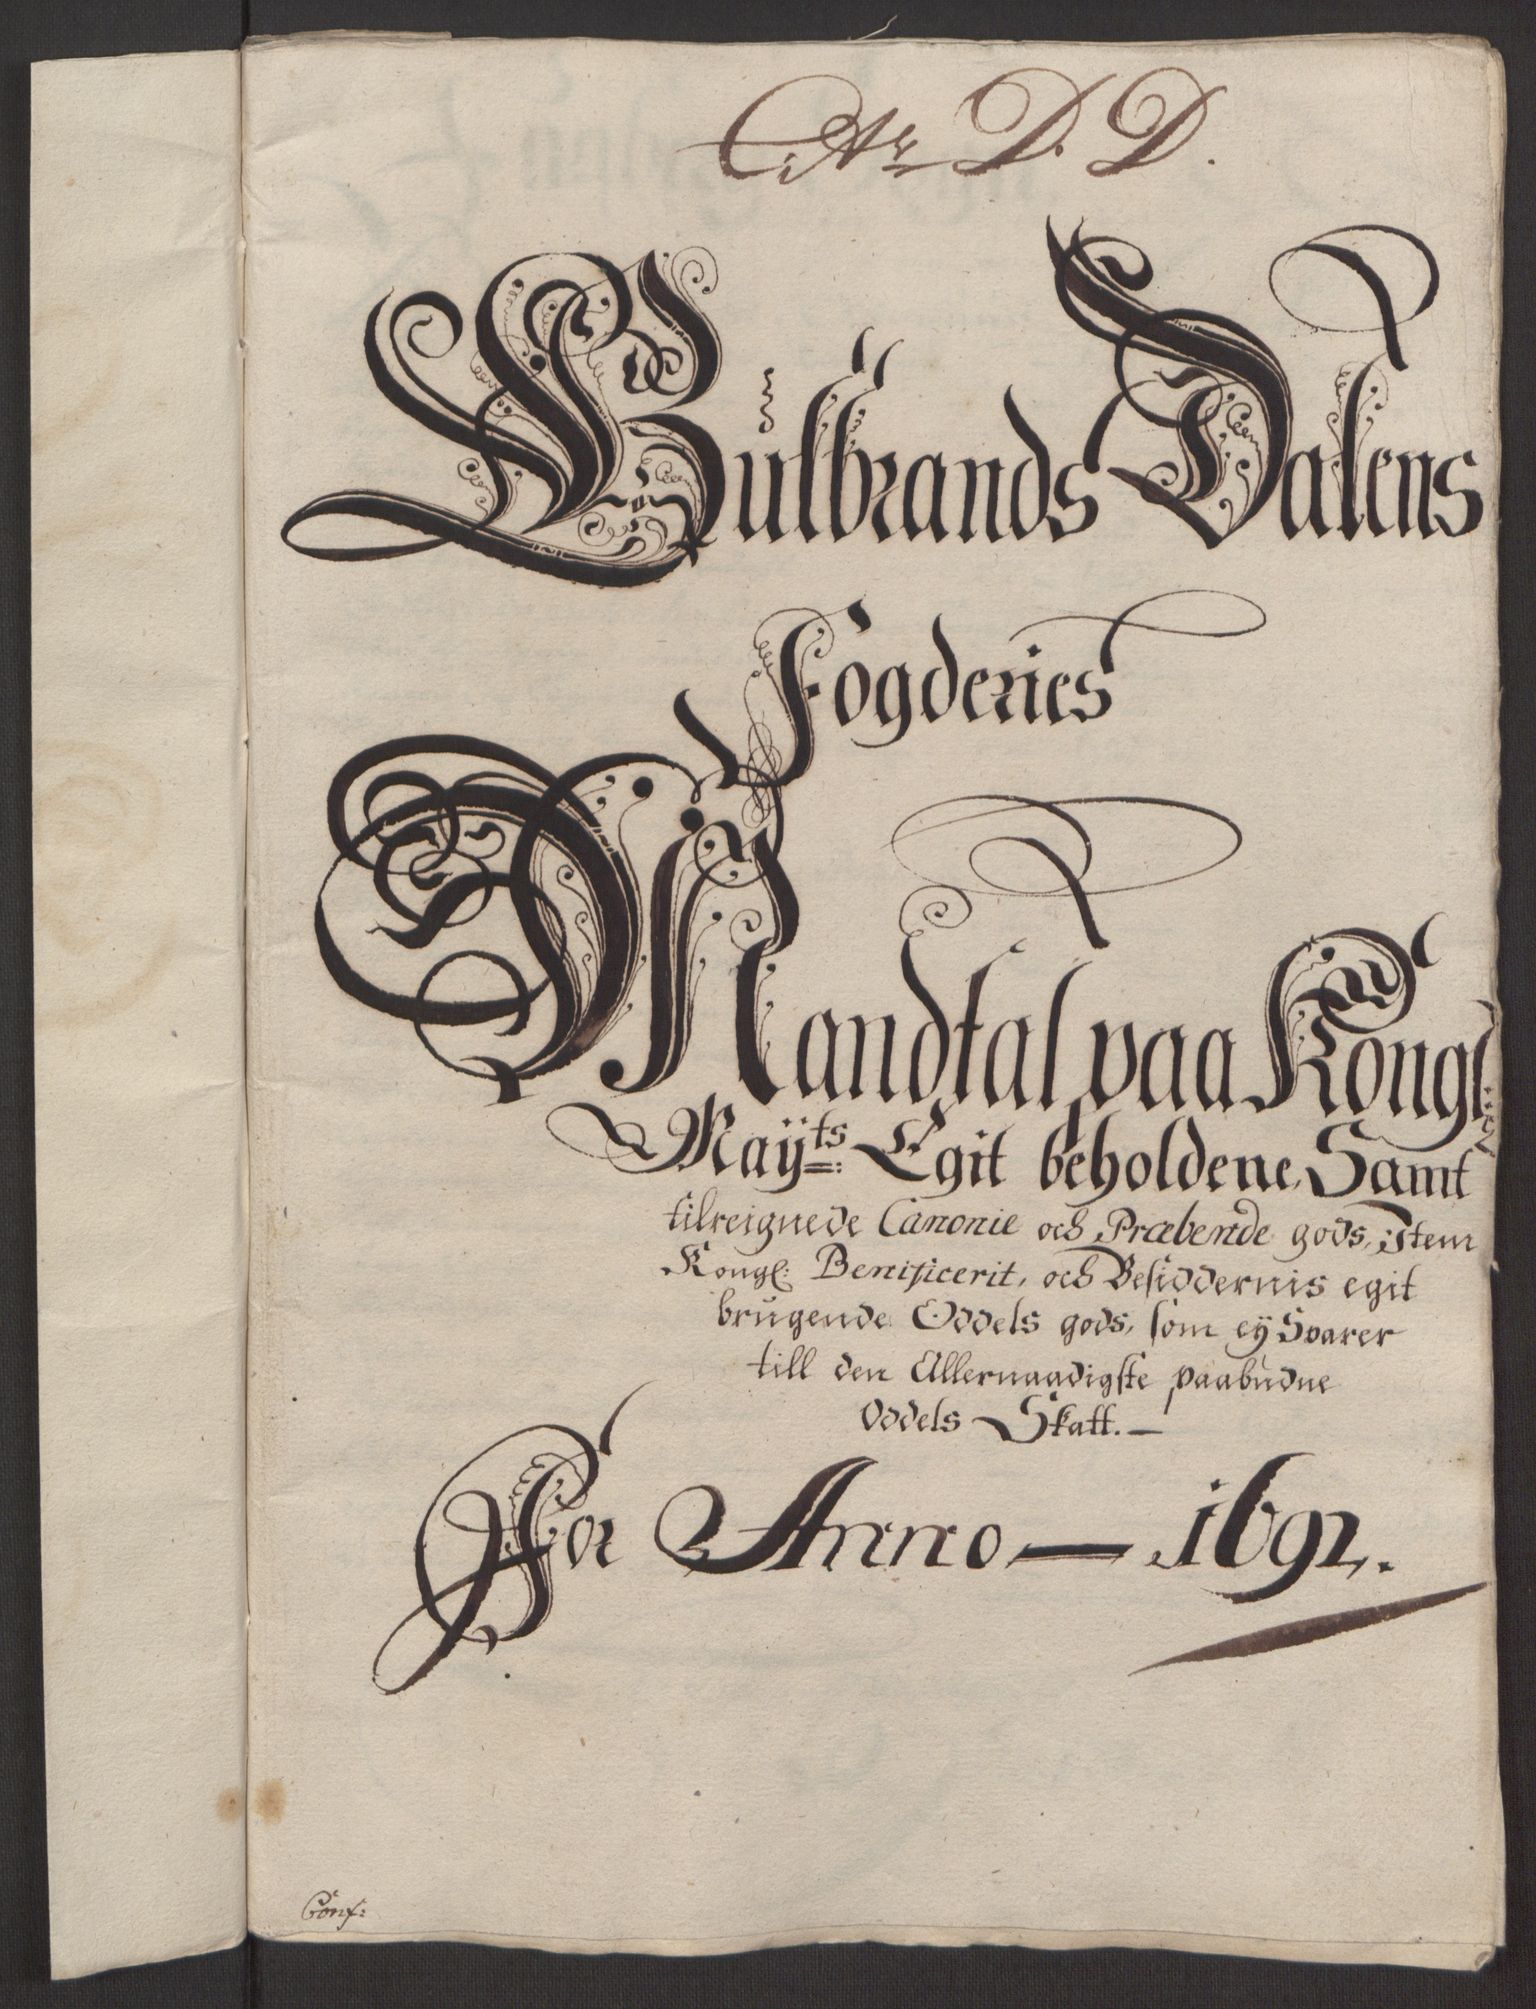 No D. D.
Gulbrands Dalens
Fogderies
Mandtal paa Kongl:
Maÿts: Egit beholdene, Samt
tilreignede Canonie och Præbende gods, Item
Kongl: Benificerit, och Besiddernis egit
brugende Oddels gods, som eÿ Svarer
till den Allernaadigste paabudne
Oddels Skatt.—
For Anno — 1692.
Conf: